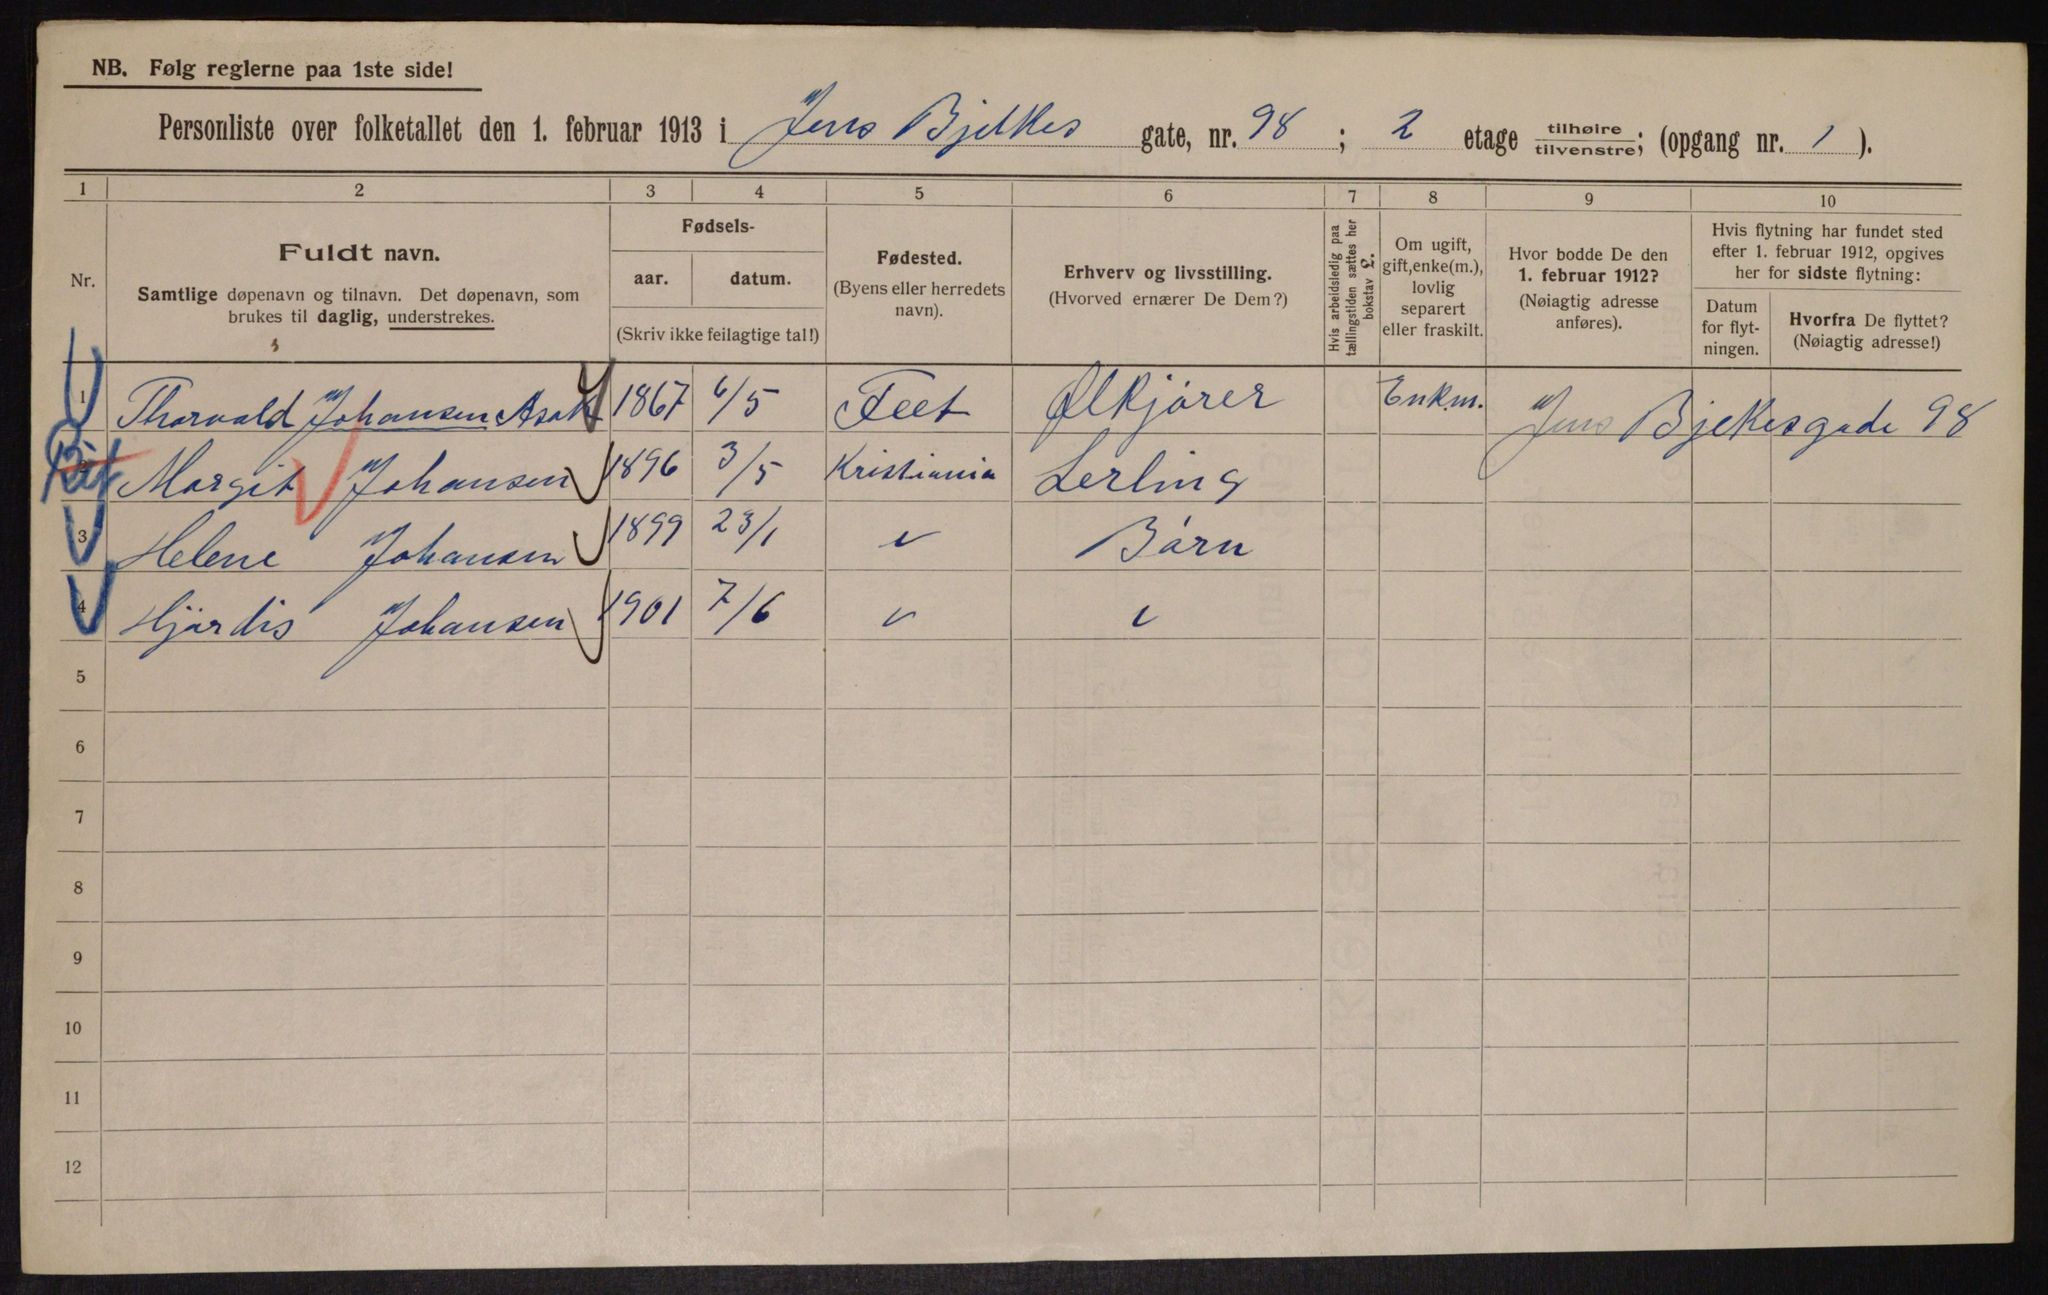 NB. Følg reglerne paa 1ste side!
Personliste over folketallet den 1. februar 1913 i Jens Bjelkes gate, nr. 98 ; 2 etage tilhøire/tilvenstre; (opgang nr. 1 ).
1 2 3 4 5 6 7 8 9 10
Nr.
Fuldt navn.
Samtlige døpenavn og tilnavn. Det døpenavn, som
brukes til daglig, understrekes.
Fødsels-
aar. datum.
(Skriv ikke feilagtige tal!)
Fødested.
(Byens eller herredets
navn).
Erhverv og livsstilling.
(Hvorved ernærer De Dem?)
Hvis arbeidsledig paa
tællingstiden sættes her
bokstav L.
Om ugift,
gift, enke(m.),
lovlig
separert
eller fraskilt.
Hvor bodde De den
1. februar 1912?
(Nøiagtig adresse
anføres).
Hvis flytning har fundet sted
efter 1. februar 1912, opgives
her for sidste flytning:
Datum
for flyt-
ningen.
Hvorfra De flyttet?
(Nøiagtig adresse!)
1 Thorvald Johansen Asak 1867 6/5 Feet Ølkjører Enkm. Jens Bjelkesgade 98
2 Margit Johansen 1896 3/5 Kristiania Lerling
3 Helene Johansen 1899 23/1 " Børn
4 Hjørdis Johansen 1901 7/6 " "
5
6
7
8
9
10
11
12